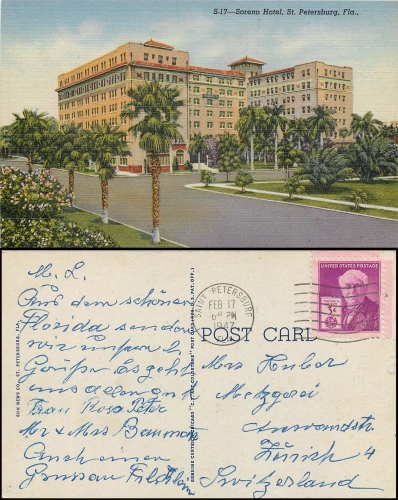 S-17—Soreno Hotel, St. Petersburg, Fla.,
M. L.
Aus dem schönen
Florida senden
wir unsere l.
Grüße Es geht
uns allen gut
Frau Rosa
Mr & Mrs
Auch einen
Gruss an
SUN NEWS CO., ST. PETERSBURG, FLA.
GENUINE CURTEICH-CHICAGO "C.T. ART-COLORTONE" POST CARD (REG. U.S. PAT. OFF.)
SAINT PETERSBURG
FEB 17
PM
1947
FLA.
UNITED STATES POSTAGE
3¢
POST CARD
Mrs Huber
Metzgerei
Zürich 4
Switzerland